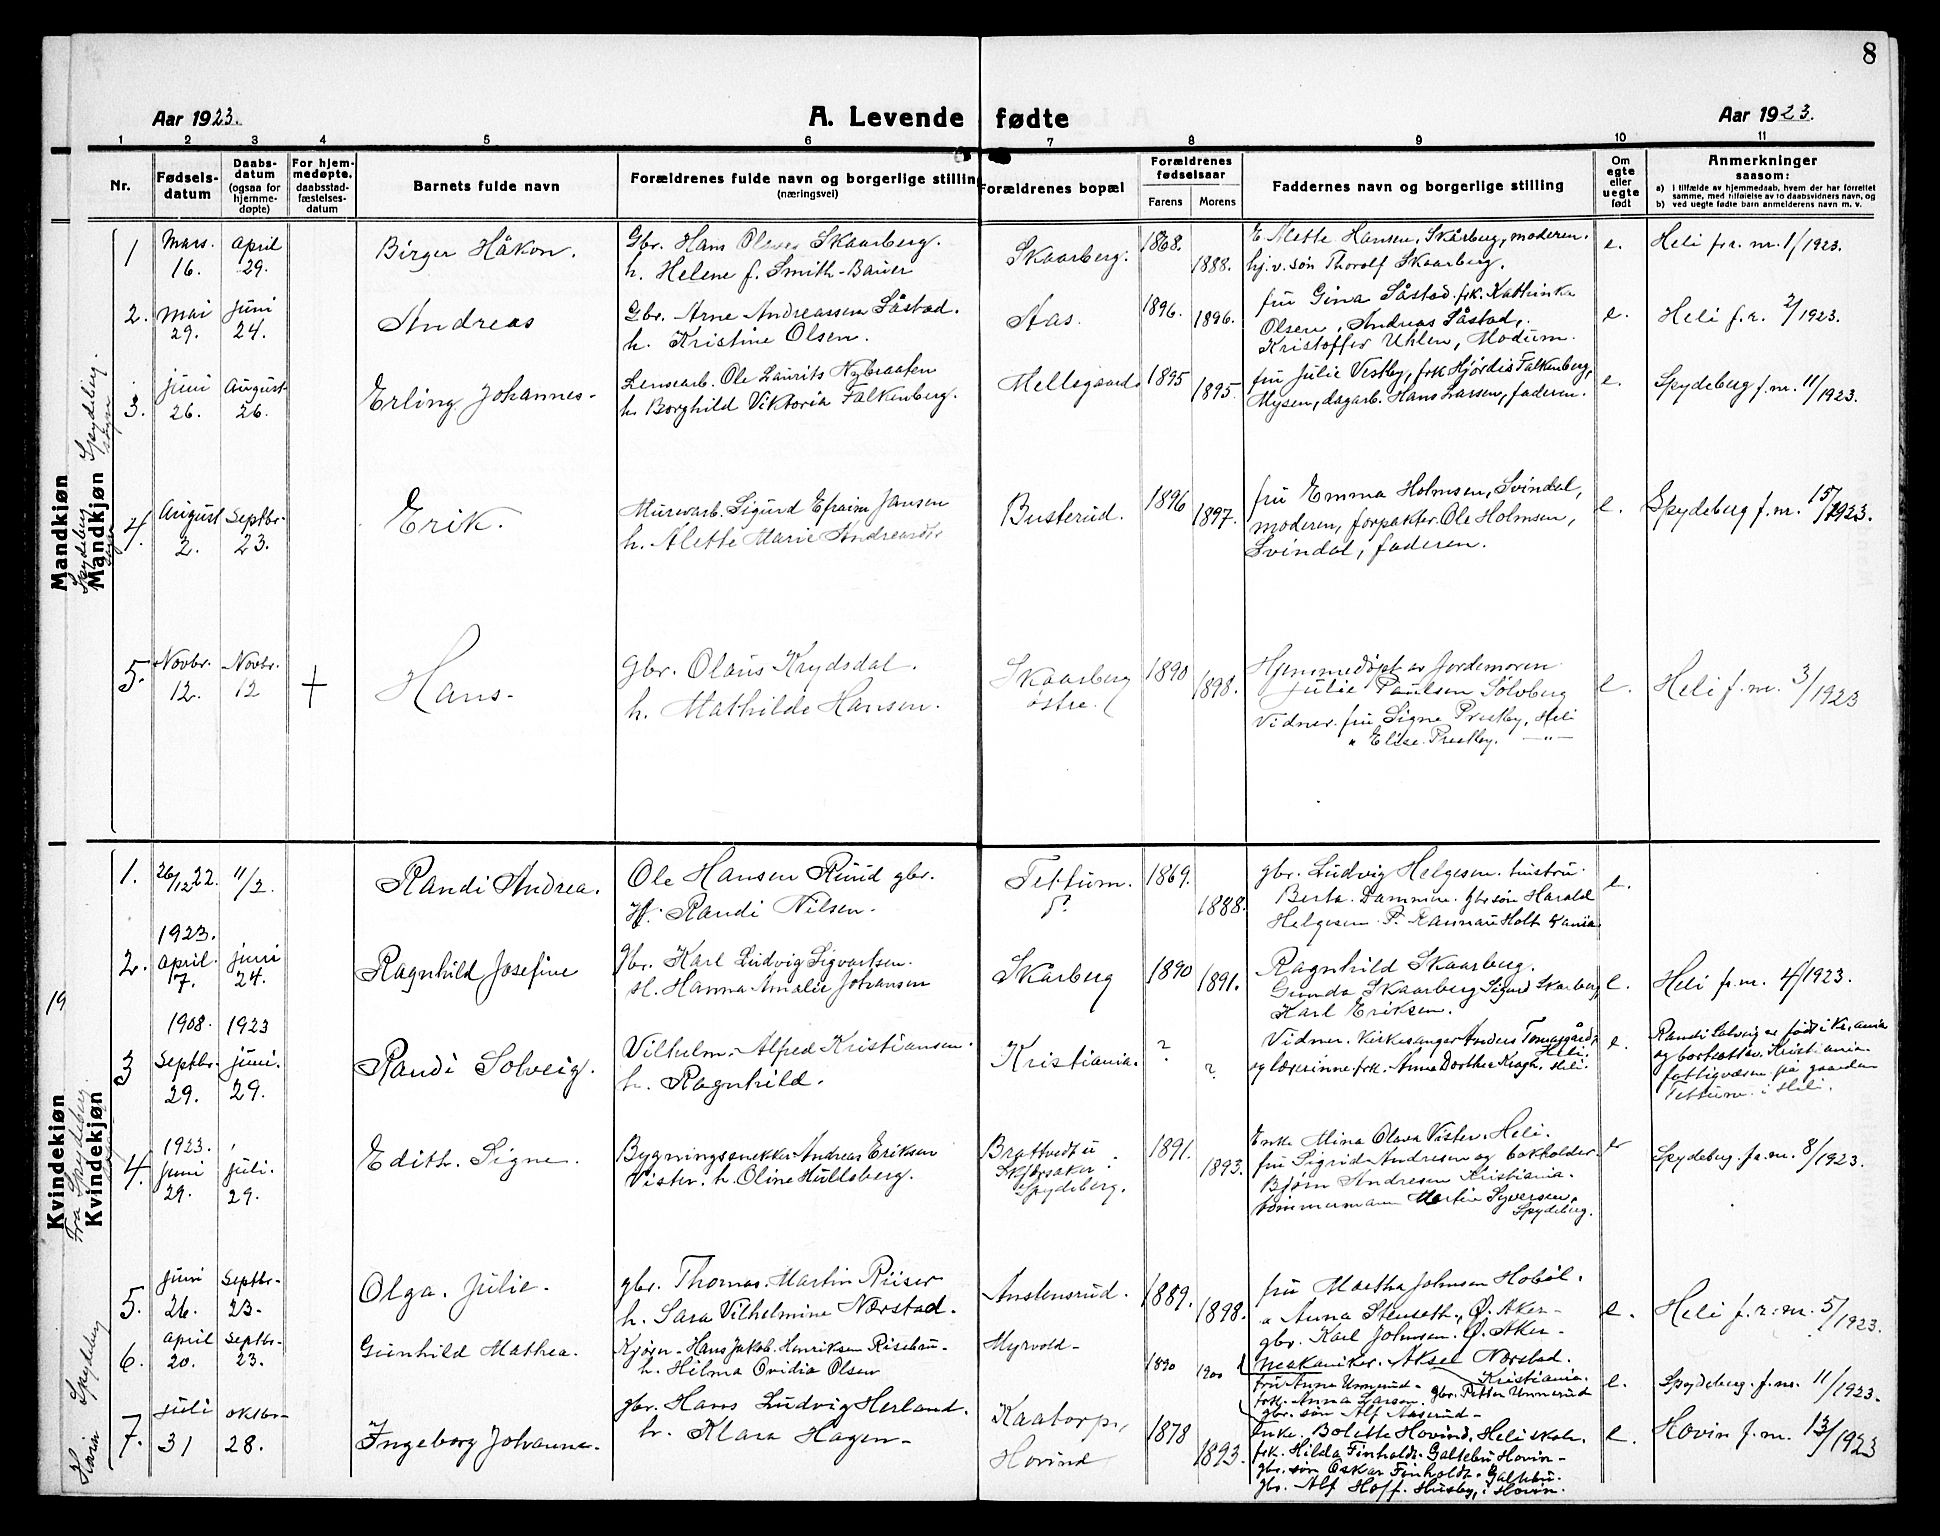 8
Aar 1923.
A. Levende fødte
Aar 1923.
1 2 3 4 5 6 7 8 9 10 11
Nr.
Fødsels-
datum
Daabs-
datum
(ogsaa for
hjemme-
døpte)
For hjem-
medøpte,
daabsstad-
fæstelses-
datum
Barnets fulde navn
Forældrenes fulde navn og borgerlige stilling
(næringsvei)
Forældrenes bopæl
Forældrenes
fødselsaar
Farens Morens
Faddernes navn og borgerlige stilling
Om
egte
eller
uegte
født
Anmerkninger
saasom:
a) i tilfælde av hjemmedaab, hvem der har forrettet
samme, med tilføielse av to daabsvidners navn, og
b) ved uegte fødte barn anmelderens navn m. v.
Mandkiøn
Mandkjøn
Spydeberg
sogn
1
Mars.
16.
April
29.
Birger Håkon.
Gbr. Hans Skaarberg.
h. Helene f. Smith-Bauer
Skaarberg.
1868.
1888.
E. Alette Hansen, Skårberg, moderen.
hj.v. søn Thorolf Skaarberg.
e.
Heli f.r. nr. 1/1923.
2.
Mai
29.
Juni
24.
Andreas
Gbr. Arne Andreassen Såstad.
h. Kristine Olsen.
Aas.
1896.
1896.
fru Gina Såstad. frk. Kathinka
Olsen, Andreas Såstad,
Kristoffer Uhlen, Modum.
e.
Heli f.r. 2/1923.
3.
Juni
26.
August
26.
Erling Johannes-
Lensearb. Ole Laurits Nybraaten
h. Borghild Viktoria Falkenberg.
Mellegaards
1895
1895.
fru Julie Vestby, frk Hjørdis Falkenberg,
Mysen, dagarb. Hans Larsen, faderen.
e.
Spydeberg f.m. 11/1923.
4.
August
2.
Septbr.
23.
Erik.
Murerarb. Sigurd Efraim Jansen
h. Alette Marie
Busterud.
1896
1897.
fru Emma Holmsen, Svindal,
moderen, forpakter Ole Holmsen,
Svindal, faderen.
e.
Spydeberg f.m. 15/1923.
5.
Novbr.
12.
Novbr.
12
+
Hans-
Gbr. Olaus Krydsdal.
h. Mathilde Hansen.
Skaarberg
østre.
1890
1898.
Hjemmedøpt av jordemoren
Julie Paulsen Sølvberg
Vidner. fru Signe Prestby, Heli
" Elise Prestby. —"—
e.
Heli f.m. 3/1923
19
Kvindekiøn
Kvindekjøn
Fra Spydeberg.
1.
26/12 22.
11/2.
Randi Andrea.
Ole Hansen Ruud gbr.
H. Randi Nilsen.
Tettum.
1869.
1888.
gbr. Ludvig Helgesen. hustru
Berta. gbr søn Harald
Helgesen
e.
1923.
2.
April.
17.
Juni
24.
Ragnhild Josefine
Gbr. Karl Ludvig Sigvartsen.
H. Hanna Amalie Johansen
Skårberg
1890
1891.
Ragnhild Skaarberg.
Gunda Skaarberg Sigurd Skarberg,
Karl Eriksen.
e.
Heli f.m. 4/1923.
1908. 1923
3
Septbr.
29.
Juni.
29.
Randi Solveig.
Vilhelm. Alfred Kristiansen.
h. Ragnhild.
Kristiania.
?
?
Vidner. Kirkesanger Anders Tomasgård,
Heli.
og lærerinne frk. Anna Dorthea Krogh, Heli.
e.
Randi Solveig er født i Kr.ania
og bortsatt av Kristiania
fattigvæsen på gaarden
Tettum i Heli.
1923.
4.
Juni
29.
Juli.
29.
Edith. Signe.
Bygningssnekker Andreas Eriksen
Vister. h. Oline Hullsberg.
Brattvedt u
Skjørsaker.
Spydeberg.
1891.
1893.
Enke Mina Olava Vister, Heli.
fru Sigrid Andresen og bokholder
Bjørn Andresen Kristiania.
tømmermann Martin Syversen,
Spydeberg.
e
Spydeberg f.m. 8/1923.
5.
Juni
26.
Septbr.
23.
Olga. Julie.
gbr. Thomas. Martin Riiser
h. Sara Vilhelmine Nørstad.
Anstensrud.
1889.
1898.
fru Martha Johnsen Hobøl.
" Anna Stenseth, Ø. Aker-
gbr. Karl Johnsen. Ø. Aker-
mekaniker. Aksel Nørstad.
Kristiania.
e.
Heli f.r.m. 5/1923.
Spydeberg
6.
April
20.
Septbr.
23.
Gunhild Mathea.
Kjører- Hans Jakob. Henriksen Risebru-
h. Hilma Ovidia Olsen
Myrvold-
1890
1900
fru Anna Unnerud- gbr. Petter Unnerud
frk. Anna Larsen.
gbr. søn Alf Aaserud-
e.
Spydeberg. f.m. 11/1923.
7.
Juli
31
Oktbr-
28.
Ingeborg Johanna.
gbr. Hans Ludvig Herland.
h. Klara Hagen-
Kaatorp,
Hovind
1878
1893.
Enke. Bolette Hovind, Heli skole.
frk. Hilda Finholdt- Galtebu Hovin-
gbr. søn Oskar Finholdt- Galtebu.
gbr. Alf Hoff. Husby, i Hovin.
e.
Hovin f.m. 13/1923